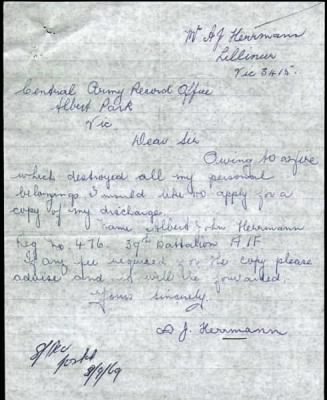 Mr A J Herrmann
Lillimur
Vic 3415.
Central Army Record Office
Albert Park
Vic
Dear Sir
Owing to a fire
which destroyed all my personal
belongings I would like to apply for a
copy of my discharge.
name Albert John Herrmann
Reg No 476. 39th Battalion A I F
If any fee required for the copy please
advise and it will be forwarded.
Yours sincerely.
A J. Herrmann
posted